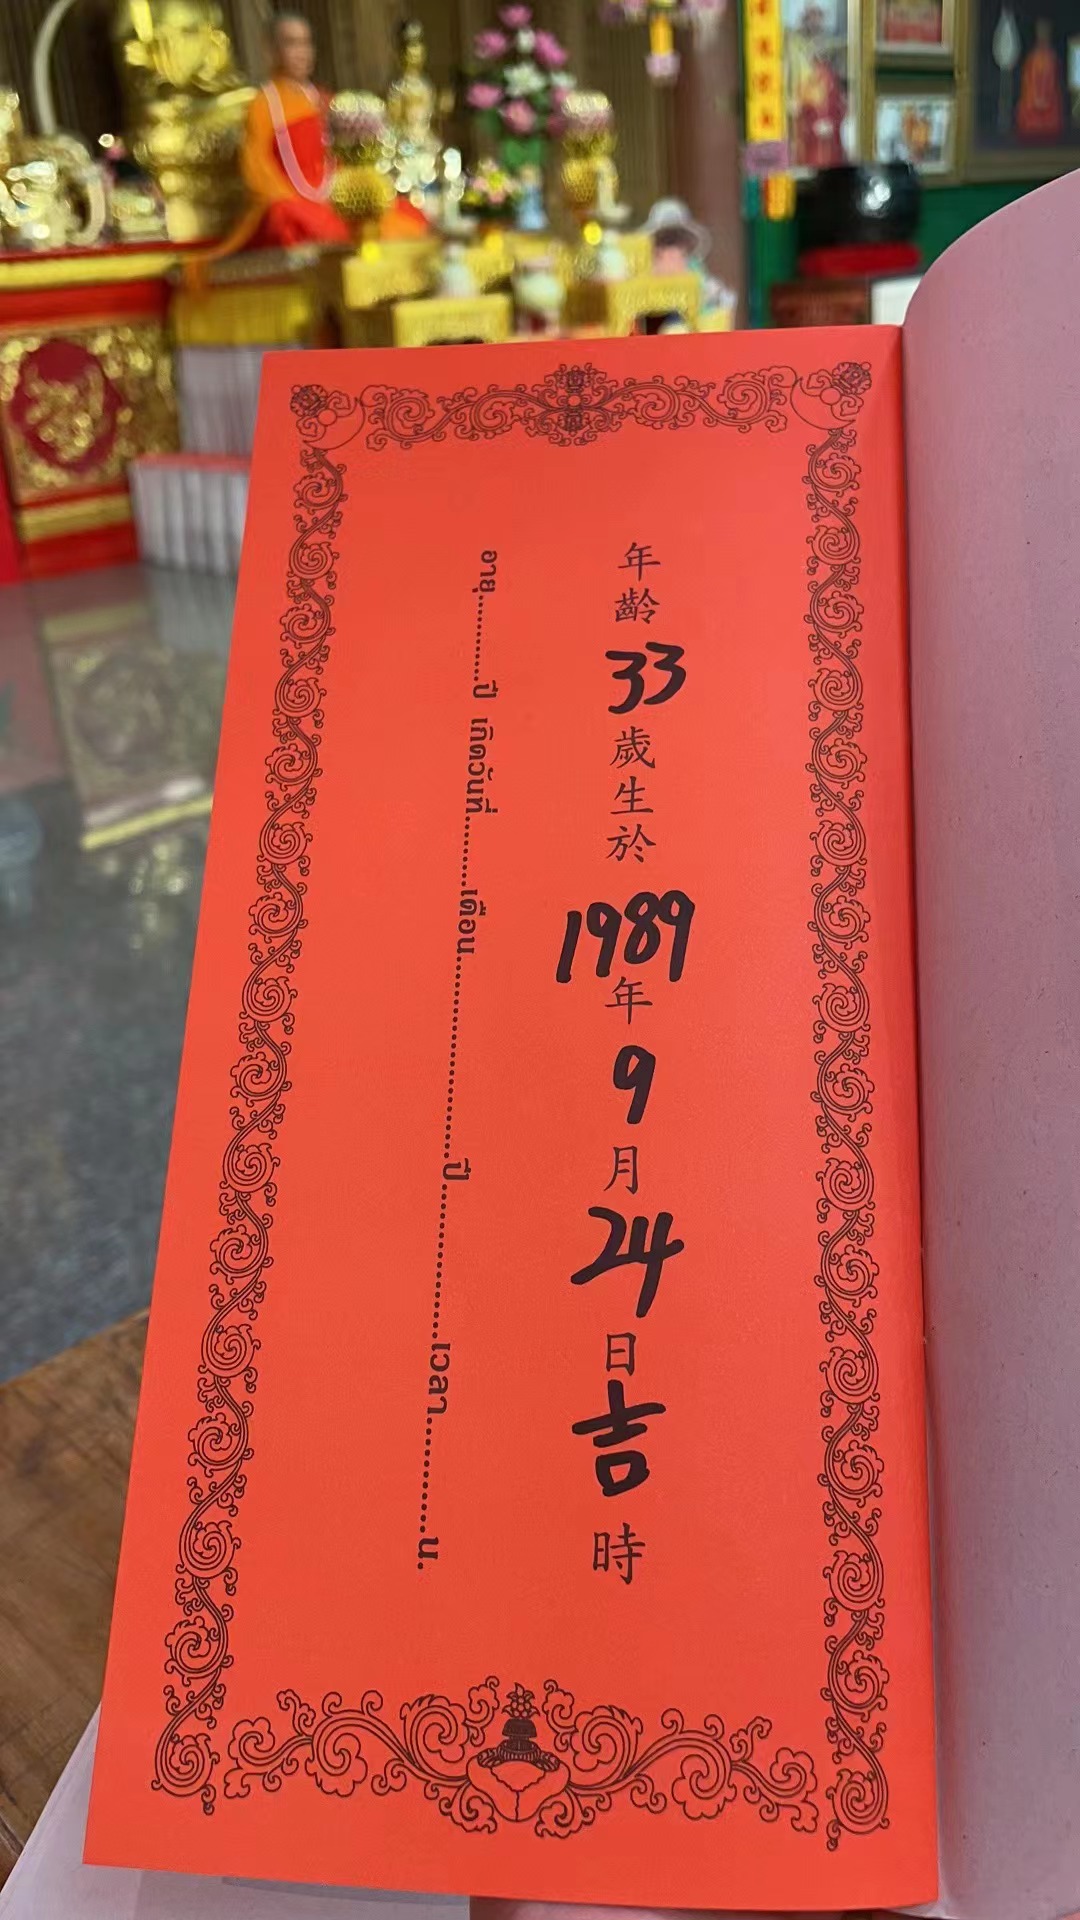 年齡33歲生於1989年9月24日吉時
อายุ..........ปี เกิดวันที่..........เดือน..............................ปี........................เวลา..............น.